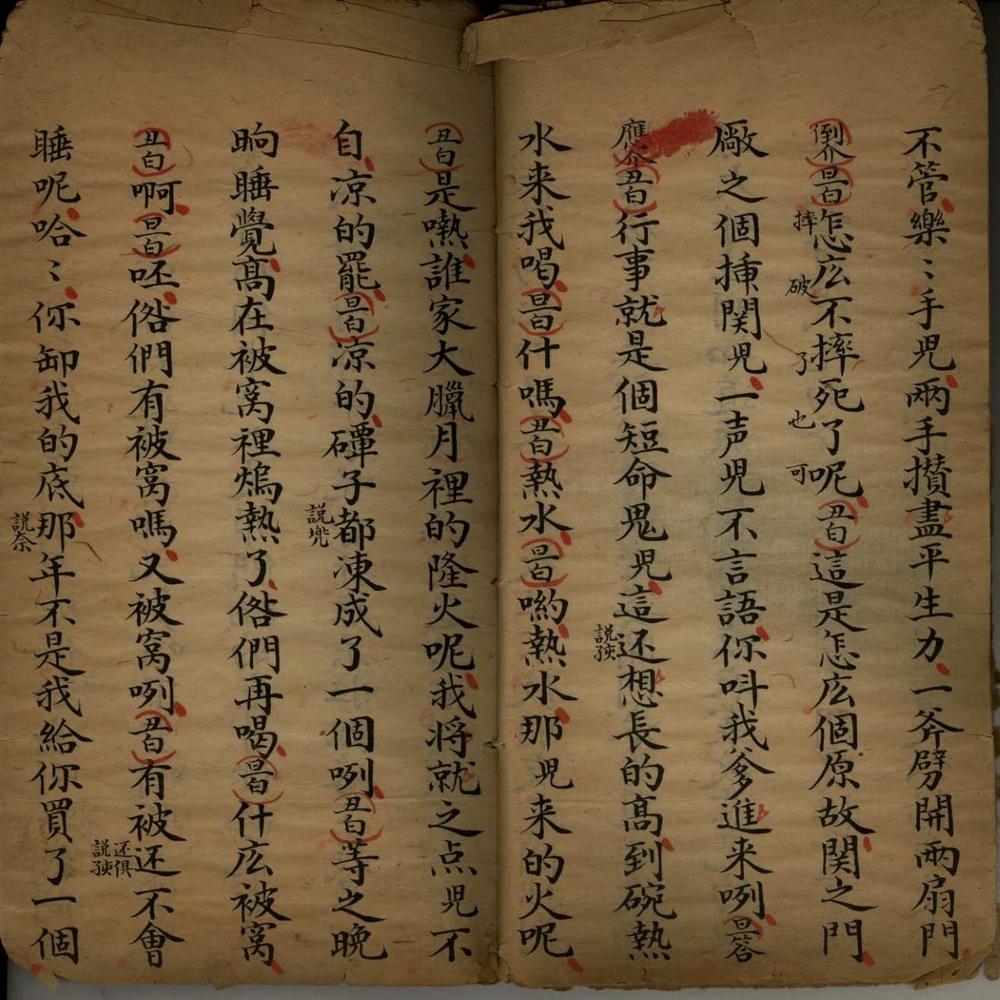 不管樂〻手児兩手攢盡平生力一斧劈開兩扇門
倒介旦白怎庅不摔死了呢丑白這是怎庅個原故関之門
摔破了也可
廠之個挿関児一声児不言語你呌我爹進来咧旦答
應介丑白行事就是個短命鬼児這还想長的髙到碗熱
水来我喝旦白什嗎丑白熱水旦白喲熱水那児来的火呢
丑白是嘞誰家大臘月裡的隆火呢我将就之点児不
自凉的罷旦白凉的礶子都凍成了一個咧丑白等之晚
晌睡覺髙在被窝裡熓熱了偺們再喝旦白什庅被窝
丑白啊旦白呸偺們有被窝嗎又被窝咧丑白有被还不會
睡呢哈〻你卸我的底那年不是我給你買了一個